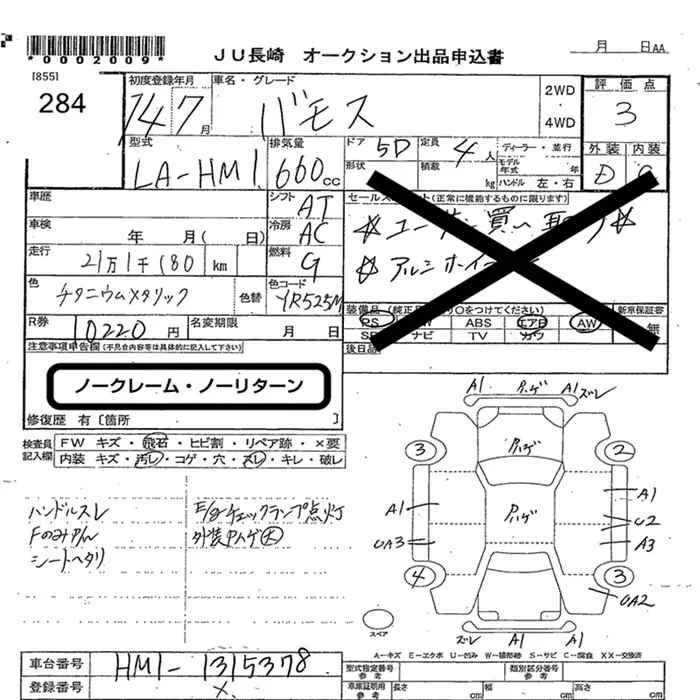 *0002009*
JU長崎 オークション出品申込書
月 日 AA
[855]
284
初度登録年月
14年7月
車名・グレード
バモス
2WD
4WD
評価点
3
型式
LA-HM1
排気量
660cc
ドア 5D
定員 4人
ディーラー・並行
モデル年式 年
形状
積載 kg
ハンドル 左・右
外装 内装
D C
車歴
シフト AT
セールスポイント(正常に機能するものに限ります)
☆ユーザー買い取り☆
☆アルミホイール
車検 年 月( 日)
冷房 AC
走行 21万1千180 km
燃料 G
色 チタニウムメタリック
色替
色コード YR525M
装備品(純正品のみ○をつけてください)
新車保証書
PS PW ABS エアB AW
SR ナビ TV カワ
無
後日品
R券 10220円
名変期限 月 日
注意事項申告欄(不具合内容等は具体的に記入して下さい)
ノークレーム・ノーリターン
修復歴 有[箇所 ]
検査員記入欄
FW キズ・飛石・ヒビ割・リペア跡・×要
内装 キズ・汚レ・コゲ・穴・スレ・キレ・破レ
ハンドルスレ
Fのみやん
シートヘタリ
E/gチェックランプ点灯
外装ハゲ大
A1 ハゲ A1 ズレ
ハゲ
ハゲ
3
2
A1
A1
U2
UA3
A3
4
3
UA2
スペア
ズレ A1 A1
A-キズ E-エクボ U-凹み W-補修跡 S-サビ C-腐食 XX-交換済
車台番号 HM1-1315378
登録番号 ×
型式指定番号 参考
類別区分番号 参考
車庫証明用 参考
長さ cm
幅 cm
高さ cm